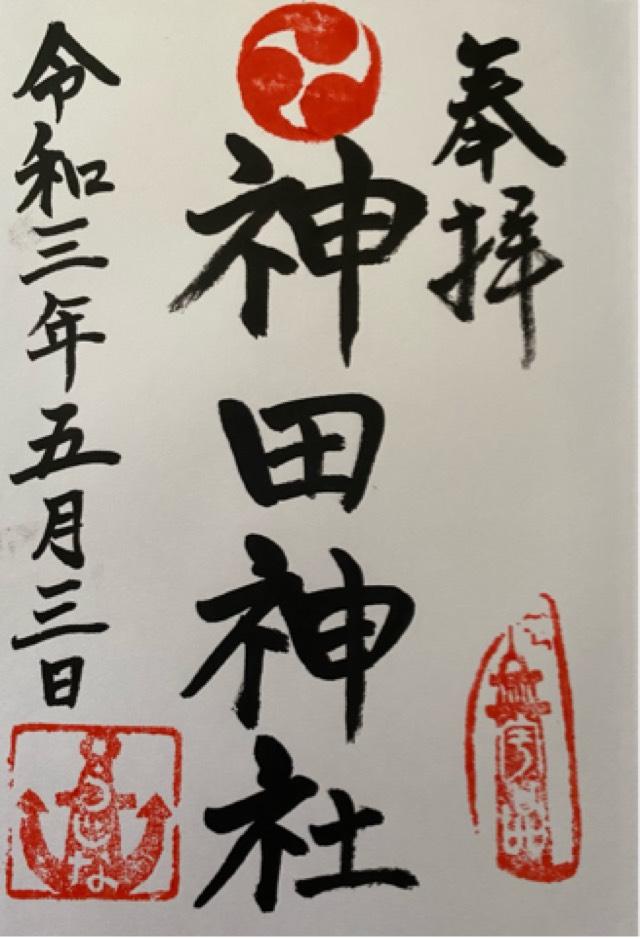 奉拝
神田神社
令和三年五月三日
うじな